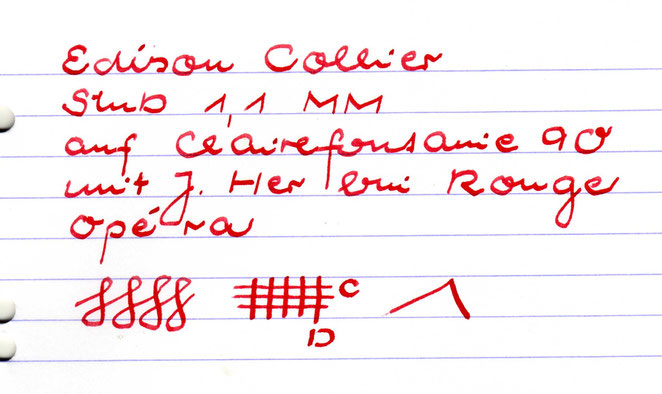 Edison Collier
Stub 1,1 MM
auf Clairefontaine 90
mit J. Herbin Rouge
Opéra
C
D